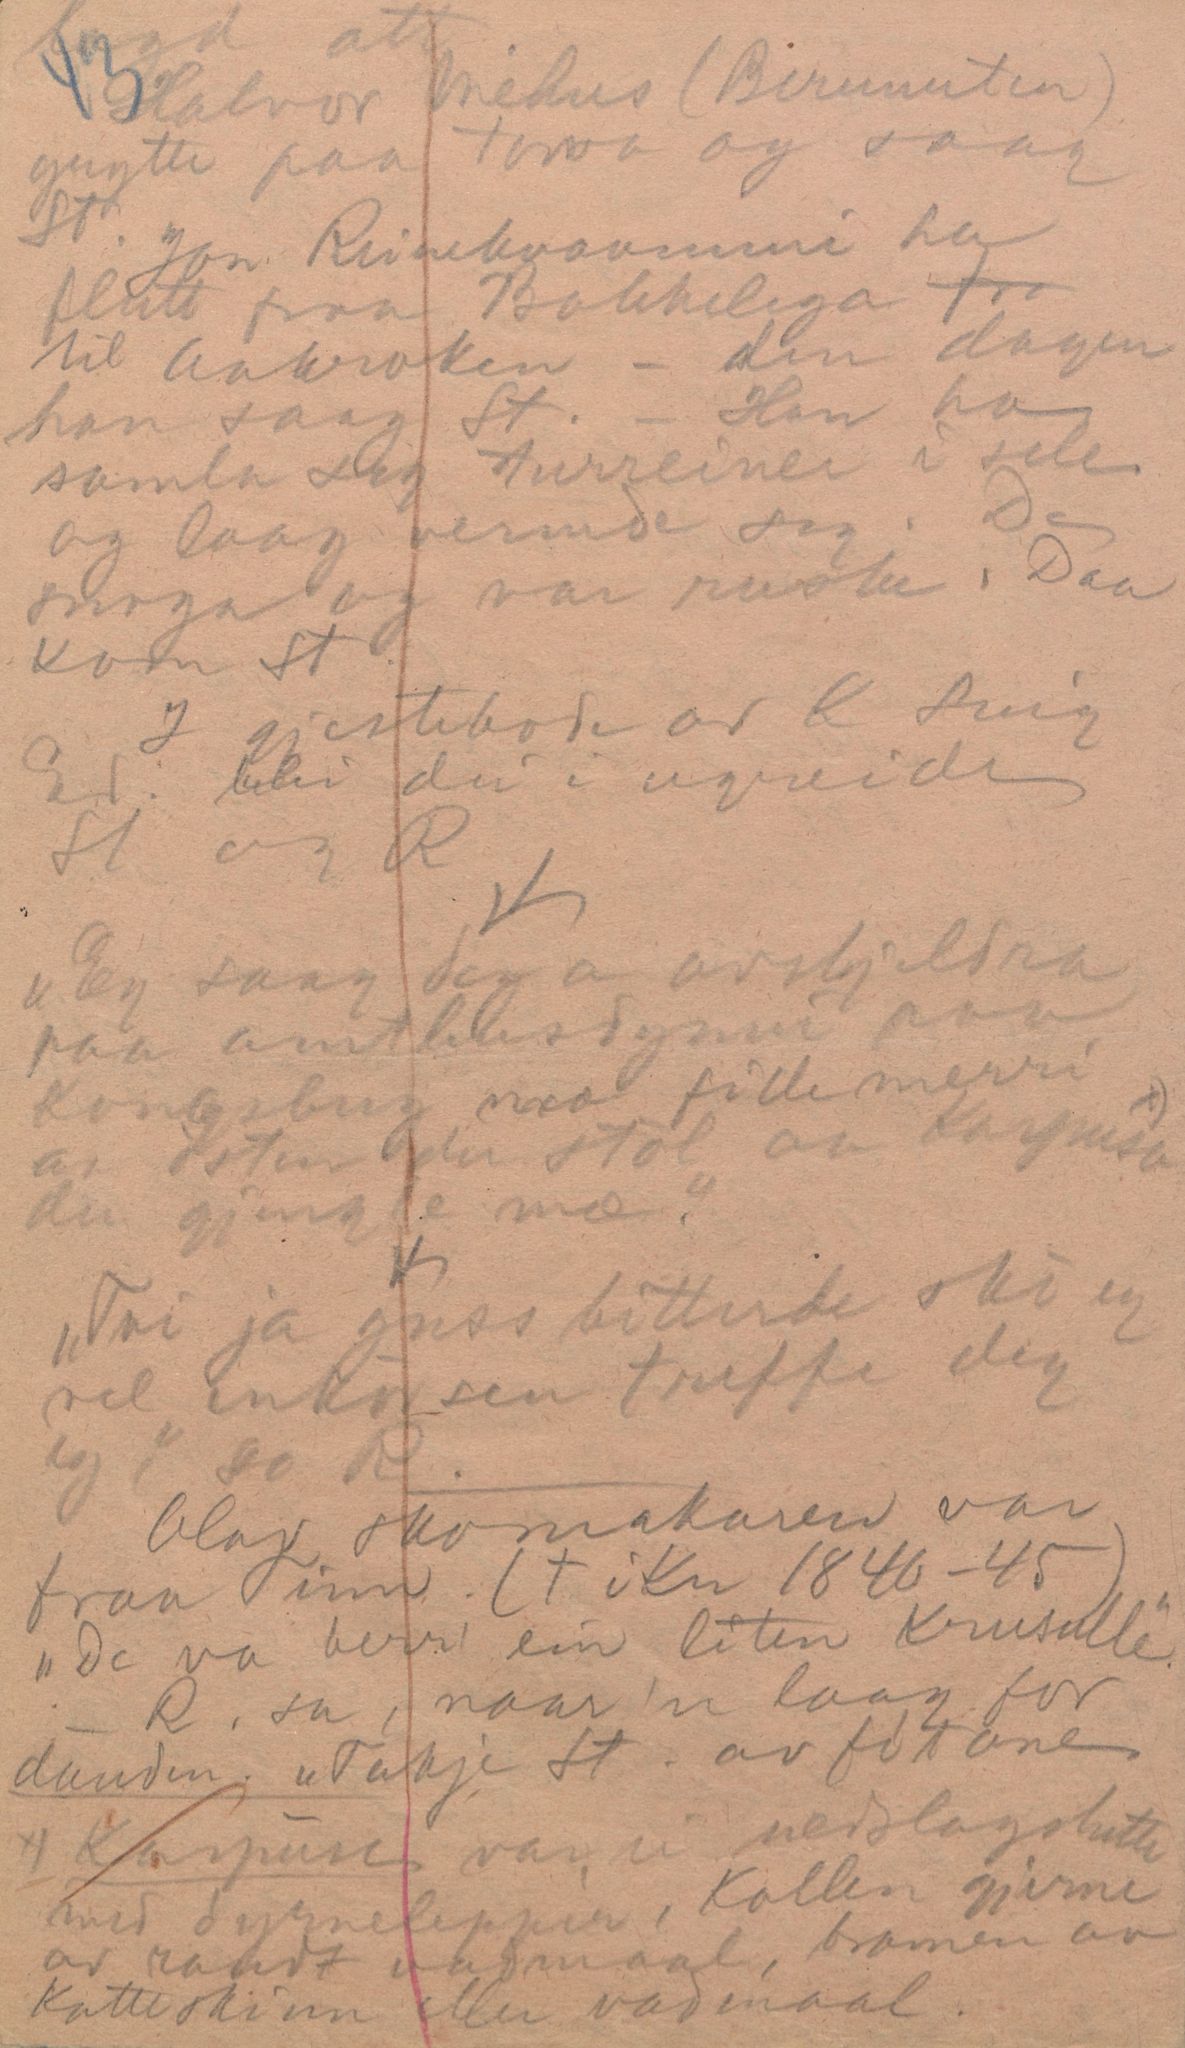 13
Halvor Mehus (Birunuten)
gengte paa torva og saag
St. Jon Reinekvaammi ha
flutt fraa Bakkelega fra
til Aakroken - den dagen
han saag St. - Han ha
samla seg turreinei i sele
og laag vermde seg. Da
snoga og var ruske. Daa
kom St.
I gjestebode av K
Ed. blei dei i ugreide
St og R
"Eg saag deg a avskjeldra
paa amthusdynni paa
Kongsberg mæ fillemerri
av östen du stol aa Karpusa x)
du gjengte mæ".
"Tvi ja guss bitterde ski eg
vel, inkórsen treffe deg
eg!" sa R.
Olav skomakaren var
fraa Tinn. († i Kn 1840-45)
"De va berr' ein liten Krusulle".
- R. sa, naar'n laag for
dauden. "Takje St. av fótane
x) Karpuse var ei nedslagshutte
med öyrneleppir, Kollen gjerne
av raudt vadmaal, bramen av
Katteskinn eller vadmaal.